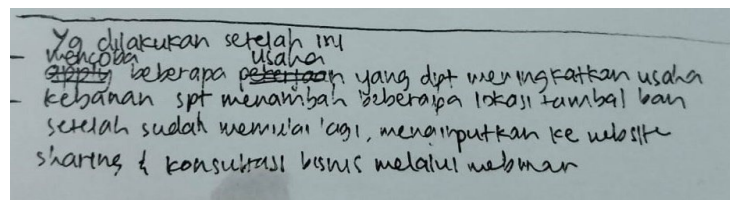 Yg dilakukan setelah ini
- mencoba usaha
beberapa yang dpt meningkatkan usaha
- kebanan spt menambah beberapa lokasi tambal ban
setelah sudah memulai lagi, menginputkan ke website
sharing & konsultasi bisnis melalui webinar